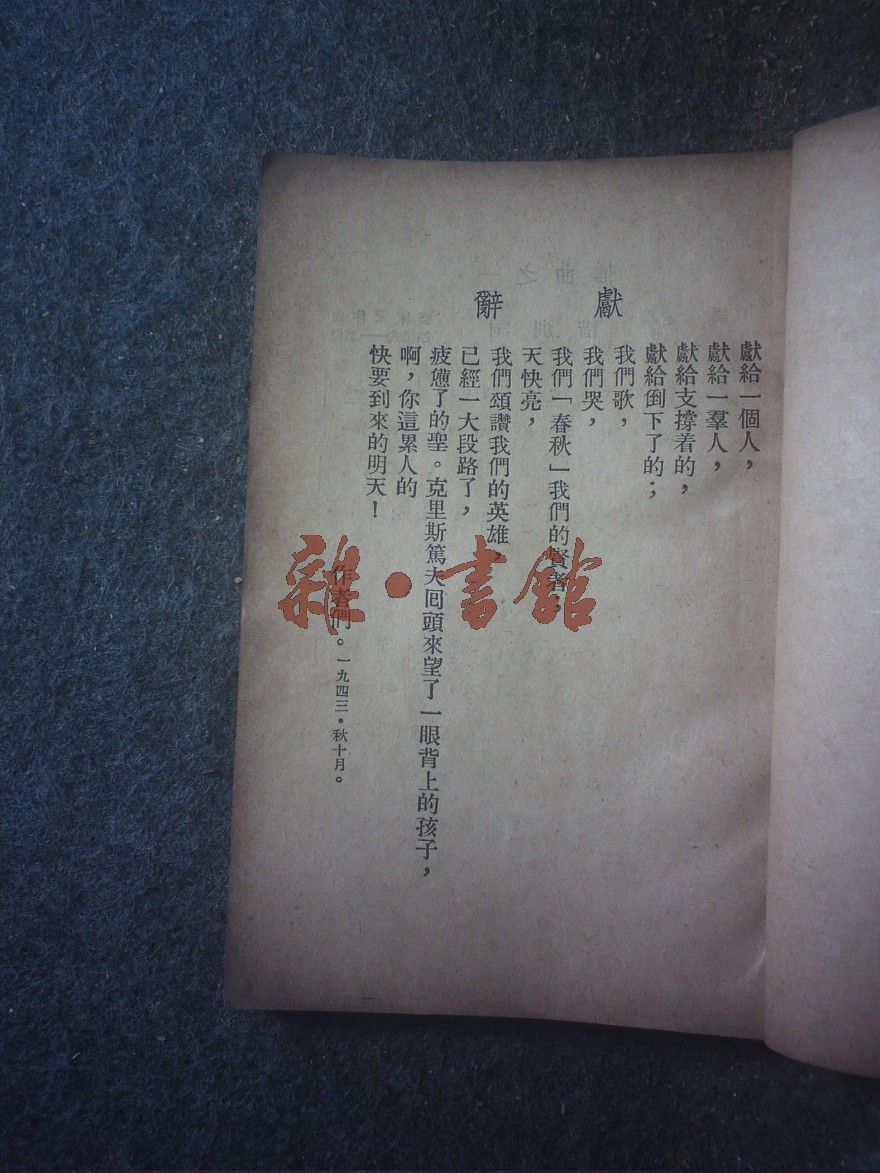 獻辭
獻給一個人，
獻給一羣人，
獻給支撐着的，
獻給倒下了的；
我們歌，
我們哭，
我們「春秋」我們的賢者；
天快亮，
我們頌讚我們的英雄，
已經一大段路了，
疲憊了的聖。克里斯篤夫囘頭來望了一眼背上的孩子，
啊，你這累人的
快要到來的明天！
作者們。一九四三．秋十月。
雜·書館